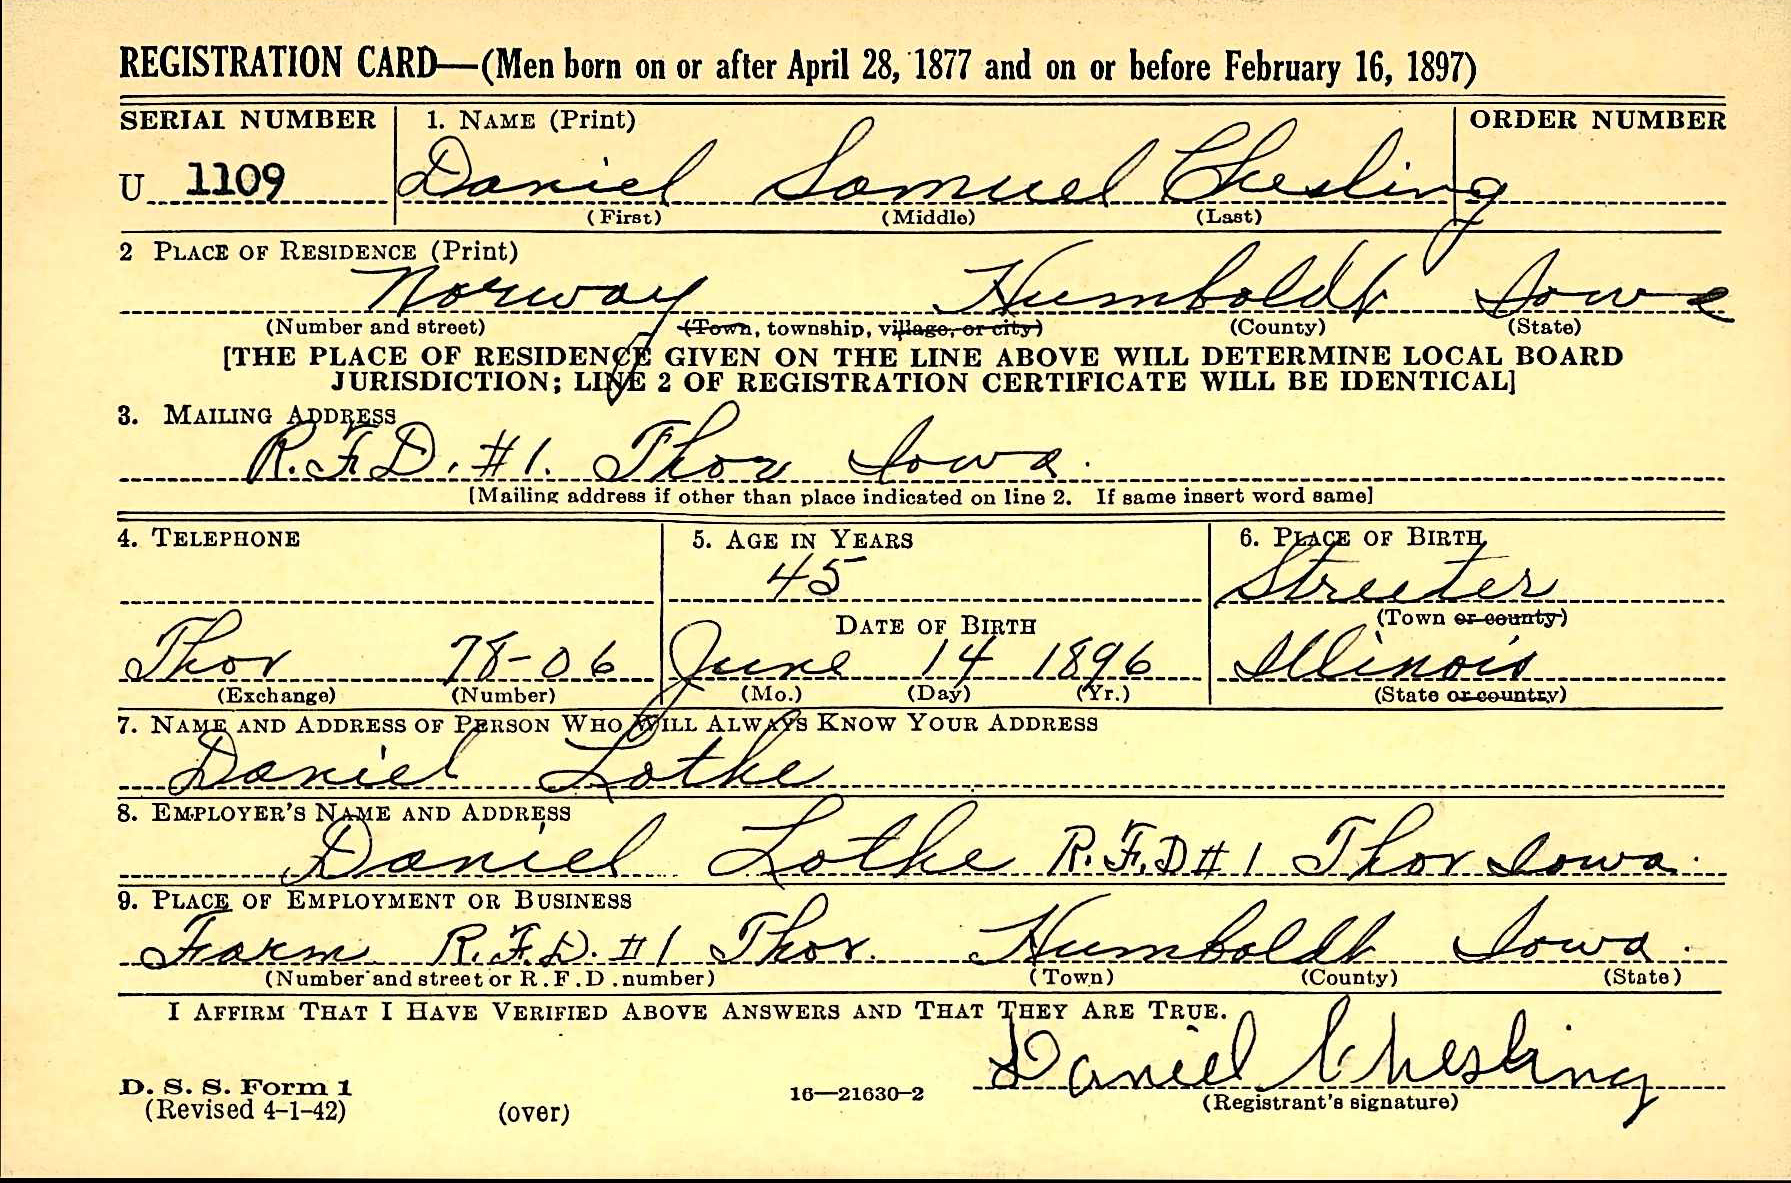 REGISTRATION CARD—(Men born on or after April 28, 1877 and on or before February 16, 1897)
SERIAL NUMBER 1. NAME (Print) ORDER NUMBER
U 1109 Daniel Samuel Chesling
(First) (Middle) (Last)
2 PLACE OF RESIDENCE (Print)
Norway Humboldt Iowa
(Number and street) (Town, township, village, or city) (County) (State)
[THE PLACE OF RESIDENCE GIVEN ON THE LINE ABOVE WILL DETERMINE LOCAL BOARD
JURISDICTION; LINE 2 OF REGISTRATION CERTIFICATE WILL BE IDENTICAL]
3. MAILING ADDRESS
R.F.D. #1. Thor Iowa.
[Mailing address if other than place indicated on line 2. If same insert word same]
4. TELEPHONE 5. AGE IN YEARS 6. PLACE OF BIRTH
45 Streeter
DATE OF BIRTH (Town or county)
Thor 78-06 June 14 1896 Illinois
(Exchange) (Number) (Mo.) (Day) (Yr.) (State or country)
7. NAME AND ADDRESS OF PERSON WHO WILL ALWAYS KNOW YOUR ADDRESS
Daniel Lothe
8. EMPLOYER'S NAME AND ADDRESS
Daniel Lothe R.F.D #1 Thor Iowa.
9. PLACE OF EMPLOYMENT OR BUSINESS
Farm R.F.D. #1 Thor. Humboldt Iowa.
(Number and street or R.F.D. number) (Town) (County) (State)
I AFFIRM THAT I HAVE VERIFIED ABOVE ANSWERS AND THAT THEY ARE TRUE.
Daniel Chesling
D. S. S. Form 1
(Revised 4-1-42) (over) 16—21630-2 (Registrant's signature)